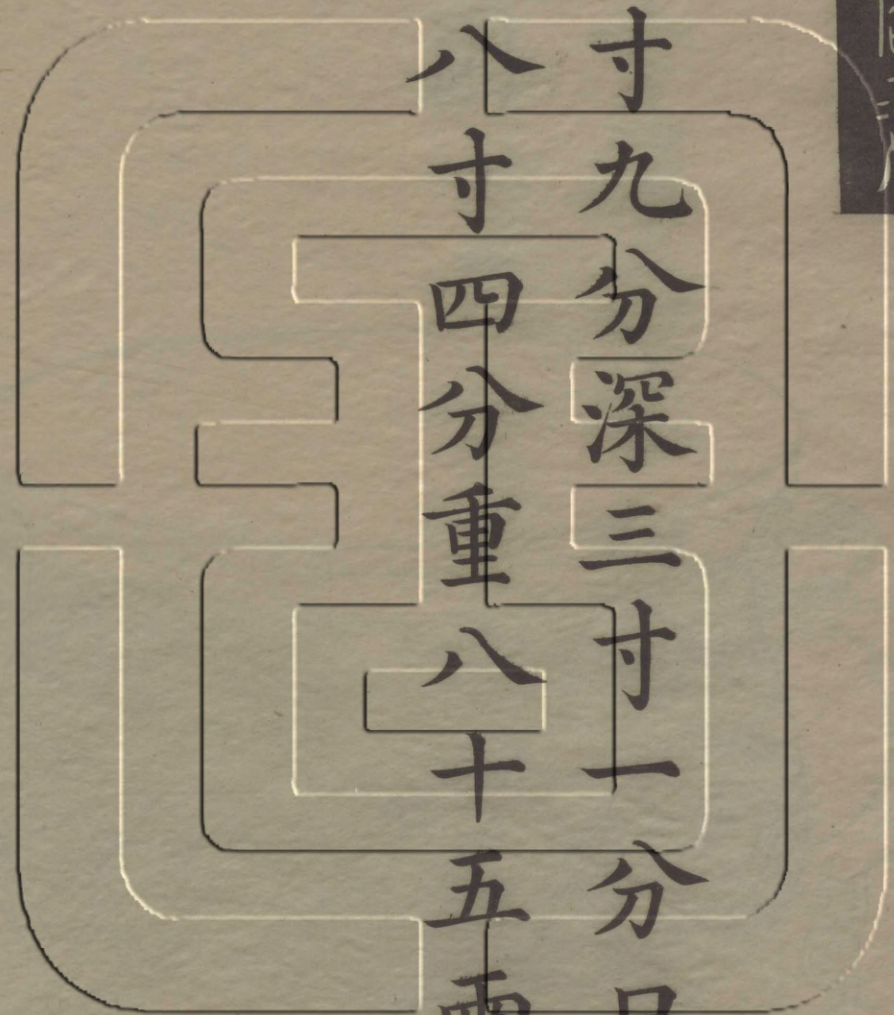 寸九分深三寸一分口
八寸四分重八十五兩